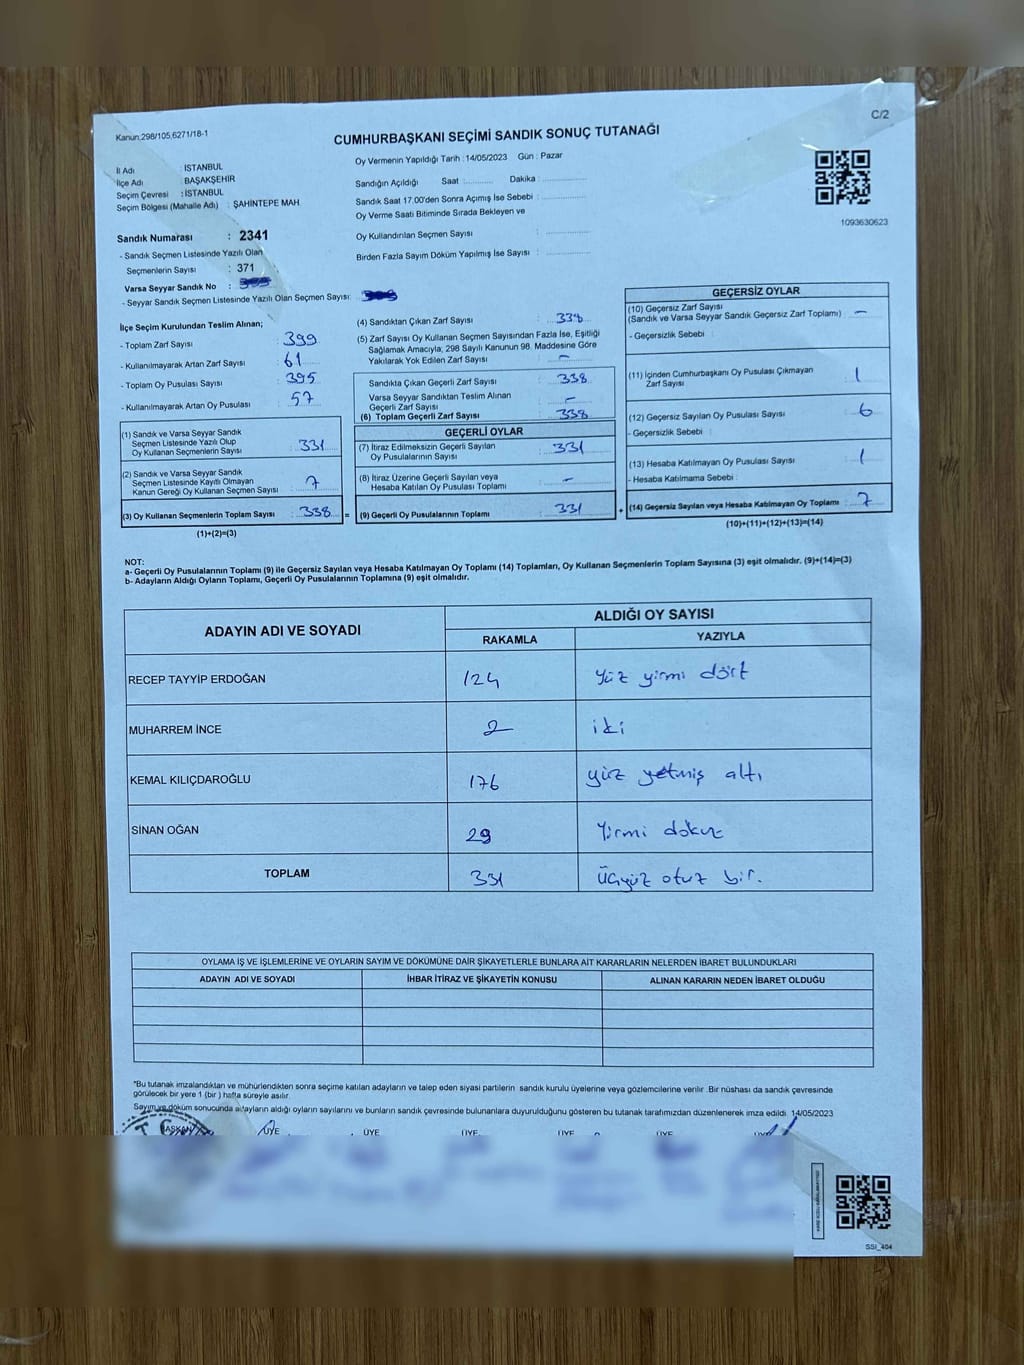 C/2
Kanun:298/105,6271/18-1
CUMHURBAŞKANI SEÇİMİ SANDIK SONUÇ TUTANAĞI
İl Adı : İSTANBUL
İlçe Adı : BAŞAKŞEHİR
Seçim Çevresi : İSTANBUL
Seçim Bölgesi (Mahalle Adı) : ŞAHİNTEPE MAH
Oy Vermenin Yapıldığı Tarih : 14/05/2023 Gün : Pazar
Sandığın Açıldığı Saat :.......... Dakika :..............
Sandık Saat 17.00'den Sonra Açımış İse Sebebi :..............
Oy Verme Saati Bitiminde Sırada Bekleyen ve
Oy Kullandırılan Seçmen Sayısı :..............
Birden Fazla Sayım Döküm Yapılmış İse Sayısı :..............
1093630623
Sandık Numarası : 2341
- Sandık Seçmen Listesinde Yazılı Olan
Seçmenlerin Sayısı : 371
Varsa Seyyar Sandık No :
- Seyyar Sandık Seçmen Listesinde Yazılı Olan Seçmen Sayısı:
İlçe Seçim Kurulundan Teslim Alınan;
- Toplam Zarf Sayısı : 399
- Kullanılmayarak Artan Zarf Sayısı : 61
- Toplam Oy Pusulası Sayısı : 395
- Kullanılmayarak Artan Oy Pusulası : 57
(1) Sandık ve Varsa Seyyar Sandık
Seçmen Listesinde Yazılı Olup
Oy Kullanan Seçmenlerin Sayısı : 331
(2) Sandık ve Varsa Seyyar Sandık
Seçmen Listesinde Kayıtlı Olmayan
Kanun Gereği Oy Kullanan Seçmen Sayısı : 7
(3) Oy Kullanan Seçmenlerin Toplam Sayısı : 338 =
(1)+(2)=(3)
(4) Sandıktan Çıkan Zarf Sayısı : 338
(5) Zarf Sayısı Oy Kullanan Seçmen Sayısından Fazla İse, Eşitliği
Sağlamak Amacıyla, 298 Sayılı Kanunun 98. Maddesine Göre
Yakılarak Yok Edilen Zarf Sayısı : -
Sandıkta Çıkan Geçerli Zarf Sayısı : 338
Varsa Seyyar Sandıktan Teslim Alınan
Geçerli Zarf Sayısı : -
(6) Toplam Geçerli Zarf Sayısı : 338
GEÇERLİ OYLAR
(7) İtiraz Edilmeksizin Geçerli Sayılan
Oy Pusulalarının Sayısı : 331
(8) İtiraz Üzerine Geçerli Sayılan veya
Hesaba Katılan Oy Pusulası Toplamı : -
(9) Geçerli Oy Pusulalarının Toplamı : 331 +
GEÇERSİZ OYLAR
(10) Geçersiz Zarf Sayısı
(Sandık ve Varsa Seyyar Sandık Geçersiz Zarf Toplamı) : -
- Geçersizlik Sebebi :
(11) İçinden Cumhurbaşkanı Oy Pusulası Çıkmayan
Zarf Sayısı : 1
(12) Geçersiz Sayılan Oy Pusulası Sayısı : 6
- Geçersizlik Sebebi :
(13) Hesaba Katılmayan Oy Pusulası Sayısı : 1
- Hesaba Katılmama Sebebi :
(14) Geçersiz Sayılan veya Hesaba Katılmayan Oy Toplamı : 7
(10)+(11)+(12)+(13)=(14)
NOT:
a- Geçerli Oy Pusulalarının Toplamı (9) ile Geçersiz Sayılan veya Hesaba Katılmayan Oy Toplamı (14) Toplamları, Oy Kullanan Seçmenlerin Toplam Sayısına (3) eşit olmalıdır. (9)+(14)=(3)
b- Adayların Aldığı Oyların Toplamı, Geçerli Oy Pusulalarının Toplamına (9) eşit olmalıdır.
ADAYIN ADI VE SOYADI ALDIĞI OY SAYISI
RAKAMLA YAZIYLA
RECEP TAYYİP ERDOĞAN 124 Yüz yirmi dört
MUHARREM İNCE 2 iki
KEMAL KILIÇDAROĞLU 176 yüz yetmiş altı
SİNAN OĞAN 29 Yirmi dokuz
TOPLAM 331 Üçyüz otuz bir.
OYLAMA İŞ VE İŞLEMLERİNE VE OYLARIN SAYIM VE DÖKÜMÜNE DAİR ŞİKAYETLERLE BUNLARA AİT KARARLARIN NELERDEN İBARET BULUNDUKLARI
ADAYIN ADI VE SOYADI İHBAR İTİRAZ VE ŞİKAYETİN KONUSU ALINAN KARARIN NEDEN İBARET OLDUĞU
"Bu tutanak imzalandıktan ve mühürlendikten sonra seçime katılan adayların ve talep eden siyasi partilerin sandık kurulu üyelerine veya gözlemcilerine verilir .Bir nüshası da sandık çevresinde
görülecek bir yere 1 (bir ) hafta süreyle asılır.
Sayım ve döküm sonucunda adayların aldığı oyların sayılarını ve bunların sandık çevresinde bulunanlara duyurulduğunu gösteren bu tutanak tarafımızdan düzenlenerek imza edildi. 14/05/2023
T.C.
BAŞKAN ÜYE ÜYE ÜYE ÜYE ÜYE ÜYE
SSI_404